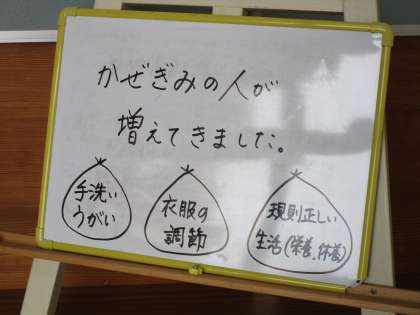 かぜぎみの人が
増えてきました。
手洗い
うがい
衣服の
調節
規則正しい
生活(栄養、休養)